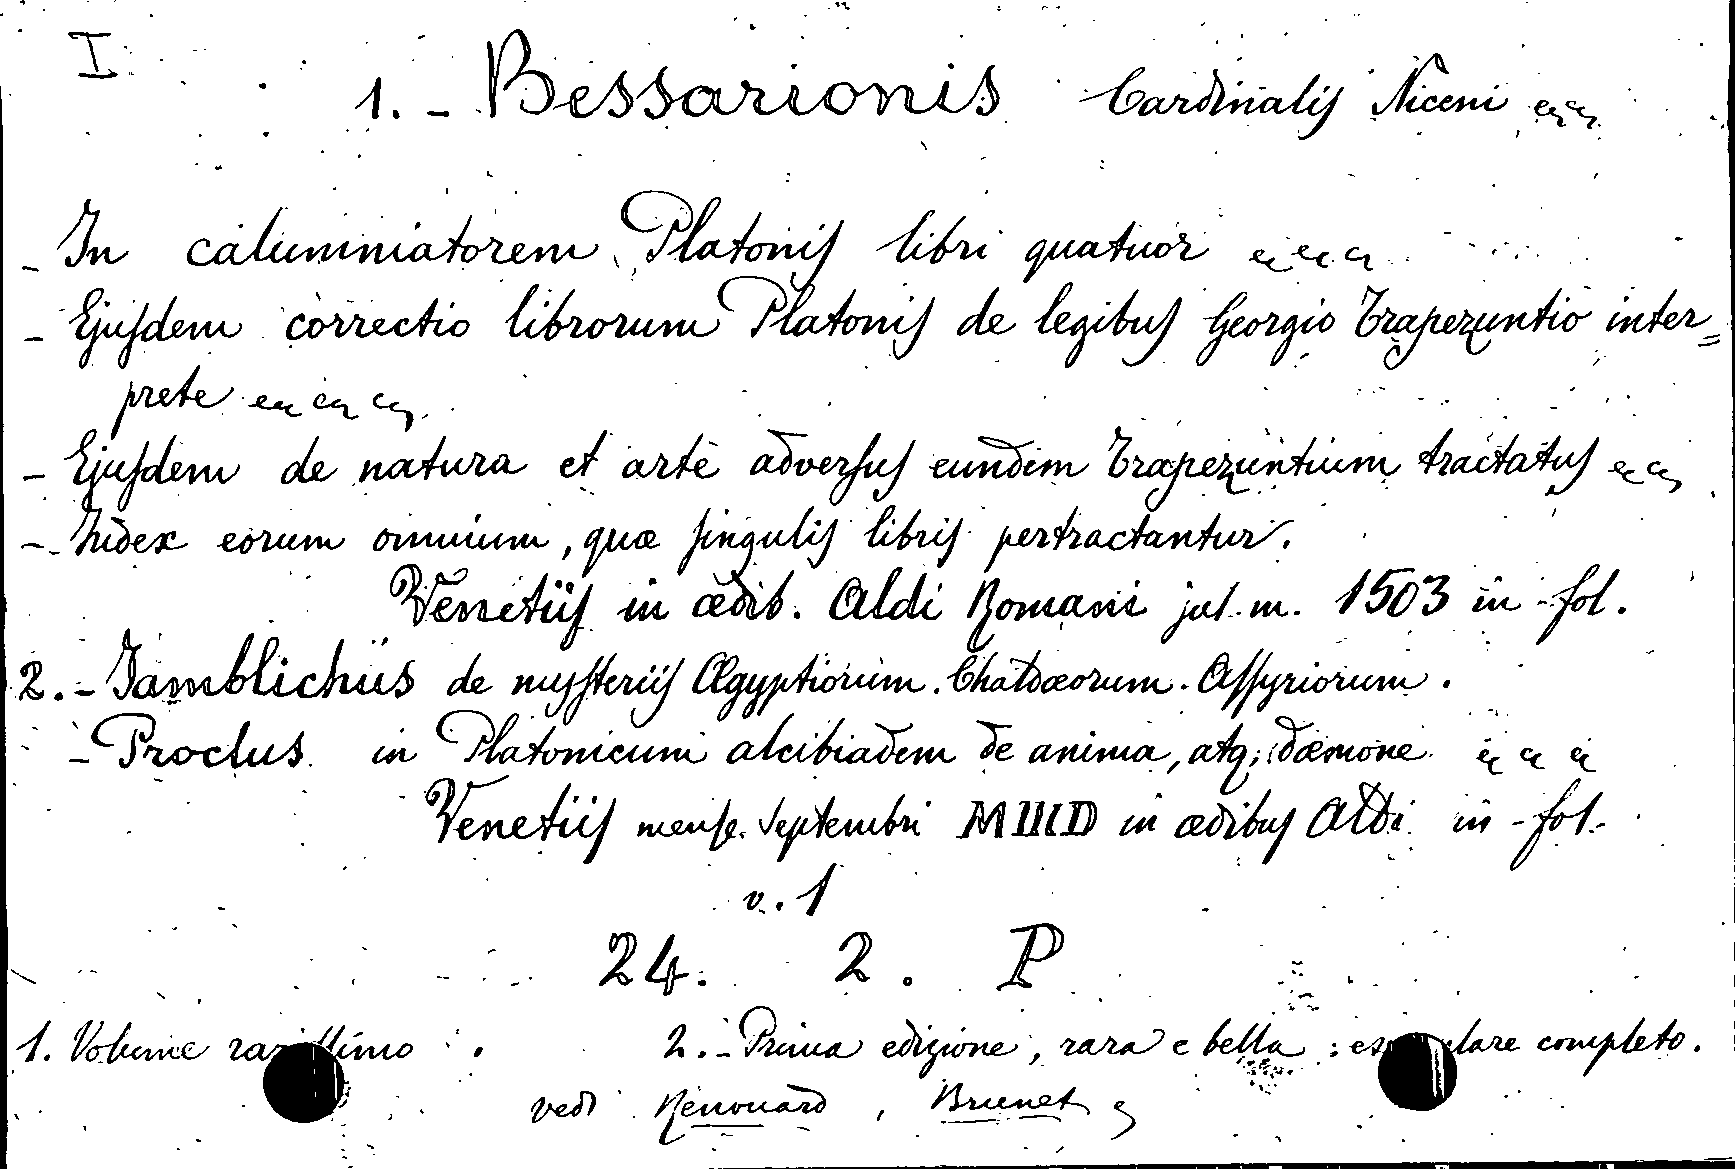 I
1. - Bessarionis Cardinalis Niceni
- In calumniatorem Platonis libri quatuor
- Ejusdem correctio librorum Platonis de legibus Georgio Trapezuntio inter=
prete
- Ejusdem de natura et arte adversus eundem Trapezuntium tractatus
- Index eorum omnium, quæ singulis libris pertractantur.
Venetiis in ædib. Aldi Romani jul. m. 1503 in-fol.
2. - Jamblichus de mysteriis Ægyptiorum. Chaldæorum. Assyriorum.
- Proclus in Platonicum alcibiadem de anima, atq; dæmone
Venetiis mense. Septembri MIIID in ædibus Aldi in-fol.
v. 1
24. 2. P
1. Volume 2. - Prima edizione, rara e bella: completo.
vedi Renouard, Brunet